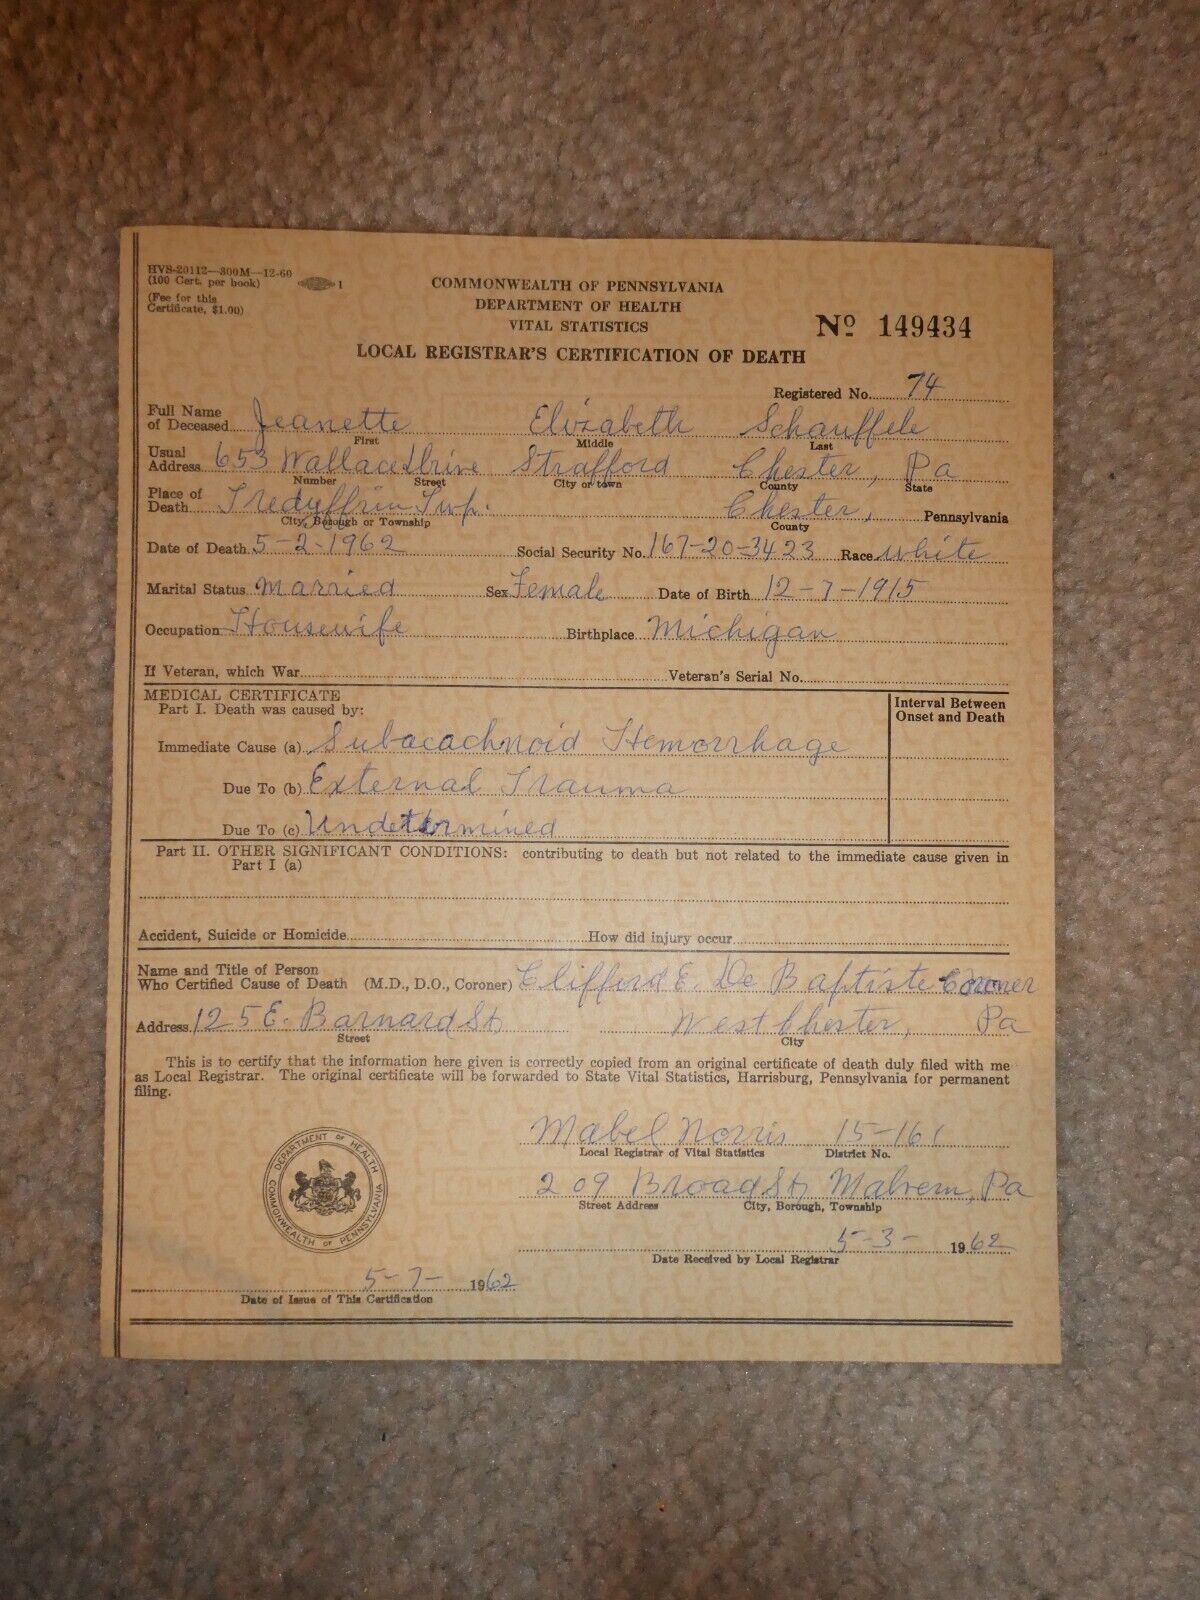 HVS-20112—300M—12-60
(100 Cert. per book) 1
(Fee for this
Certificate, $1.00)
COMMONWEALTH OF PENNSYLVANIA
DEPARTMENT OF HEALTH
VITAL STATISTICS
Nº 149434
LOCAL REGISTRAR'S CERTIFICATION OF DEATH
Registered No. 74
Full Name
of Deceased Jeanette Elizabeth Schauffele
First Middle Last
Usual
Address 653 Wallace Drive Strafford Chester, Pa
Number Street City or town County State
Place of
Death Tredyffrin Twp. Chester, Pennsylvania
City, Borough or Township County
Date of Death 5-2-1962 Social Security No. 167-20-3423 Race white
Marital Status Married Sex Female Date of Birth 12-7-1915
Occupation Housewife Birthplace Michigan
If Veteran, which War Veteran's Serial No.
MEDICAL CERTIFICATE
Part I. Death was caused by:
Interval Between
Onset and Death
Immediate Cause (a) Subacachnoid Hemorrhage
Due To (b) External Trauma
Due To (c) Undetermined
Part II. OTHER SIGNIFICANT CONDITIONS: contributing to death but not related to the immediate cause given in
Part I (a)
Accident, Suicide or Homicide How did injury occur
Name and Title of Person
Who Certified Cause of Death (M.D., D.O., Coroner) Clifford E. De Baptiste Coroner
Address 125 E. Barnard St West Chester, Pa
Street City
This is to certify that the information here given is correctly copied from an original certificate of death duly filed with me
as Local Registrar. The original certificate will be forwarded to State Vital Statistics, Harrisburg, Pennsylvania for permanent
filing.
Mabel Norris 15-161
Local Registrar of Vital Statistics District No.
209 Broad St, Malvern, Pa
Street Address City, Borough, Township
5-3- 1962
Date Received by Local Registrar
DEPARTMENT OF HEALTH
COMMONWEALTH OF PENNSYLVANIA
5-7- 1962
Date of Issue of This Certification